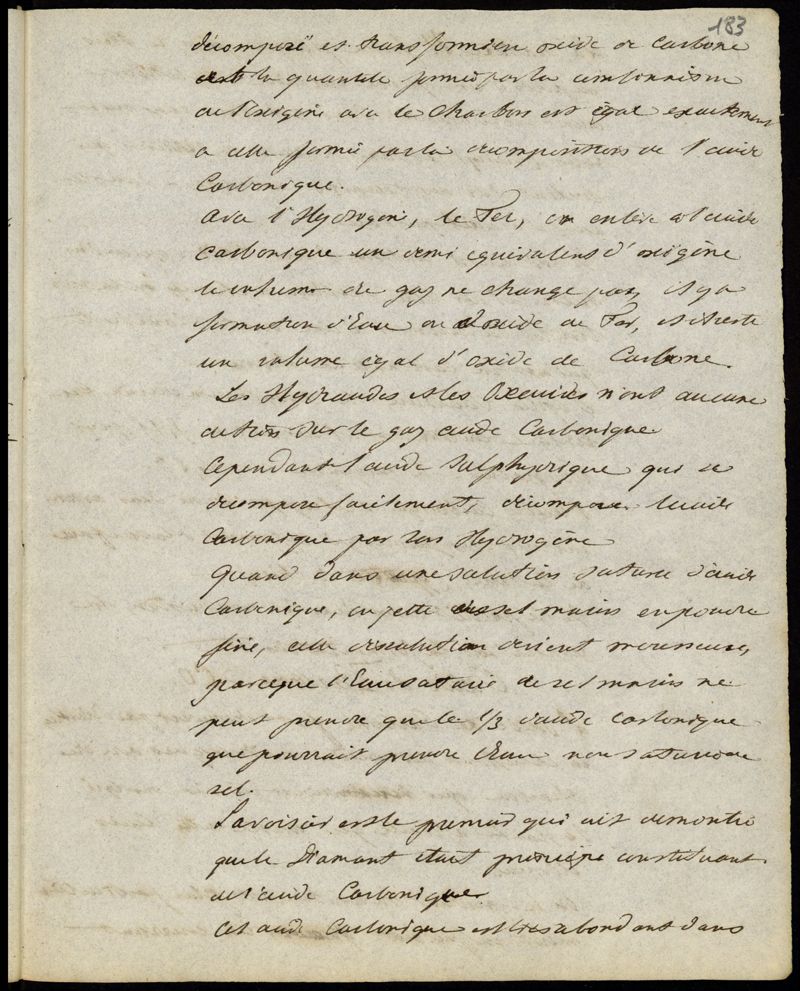 183
décomposé et transformé en oxide de carbone
est la quantité formée par la combinaison
de l'oxigène avec le charbon est égal exactement
a celle formée par la décomposition de l'acide
Carbonique.
Avec l'Hydrogène, le Fer, on enlève a l'acide
carbonique un demi équivalent d'oxigène
le volume de gaz ne change pas, il y a
formation d'Eau ou d'oxide de Fer, et il reste
un volume égal d'oxide de Carbone.
Les Hydracides et les Oxacides n'ont aucune
action sur le gaz acide Carbonique
Cependant l'acide Sulphydrique qui se
décompose facilement, décompose l'acide
Carbonique par son Hydrogène
Quand dans une solution saturée d'acide
Carbonique, on jette du sel marin en poudre
fine, cette dissolution devient mousseuse,
parceque l'Eau saturée de sel marin ne
peut prendre que le 1/3 d'acide carbonique
que pourrait prendre l'Eau non saturée de
sel.
Lavoisier est le premier qui ait démontré
que le Diamant était principe constituant
de l'acide Carbonique.
Cet acide Carbonique est très abondant dans